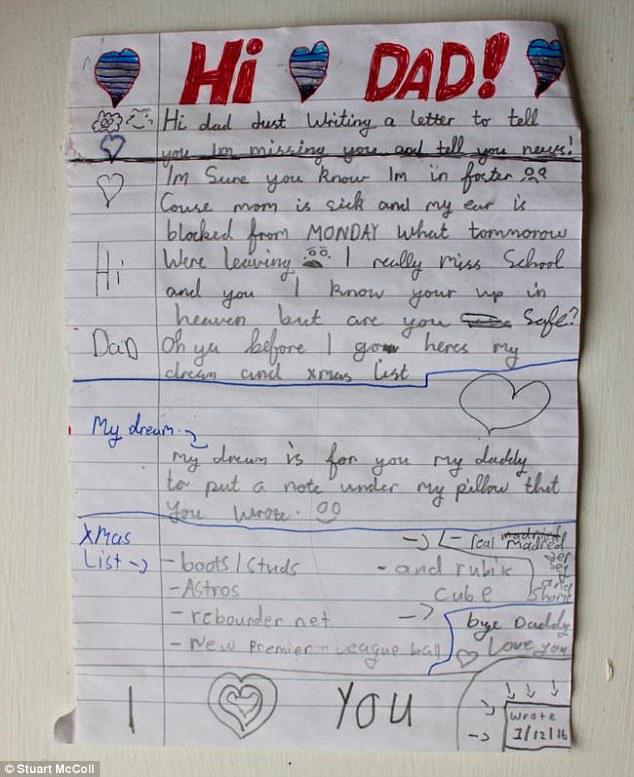 Hi DAD!
Hi dad Just Writing a letter to tell
you Im missing you and tell you news!
Im Sure you know Im in foster
Couse mom is sick and my ear is
blocked from MONDAY What tomnorow
Were leaving I really miss School
and you I know your up in
heaven but are you Safe?
Oh ya before I go heres my
dream and xmas list
Hi
DaD
My dream
My dream is for you my daddy
to put a note under my pillow that
You Wrote.
XMas
List
- boots/studs
- Astros
- rebounder net
- New Premier - League ball
- real madrid
Madred
Jer
sey
and
Shorts
- and rubix
cube
bye Daddy
Love you
I YOU
Wrote
1/12/16
© Stuart McColl